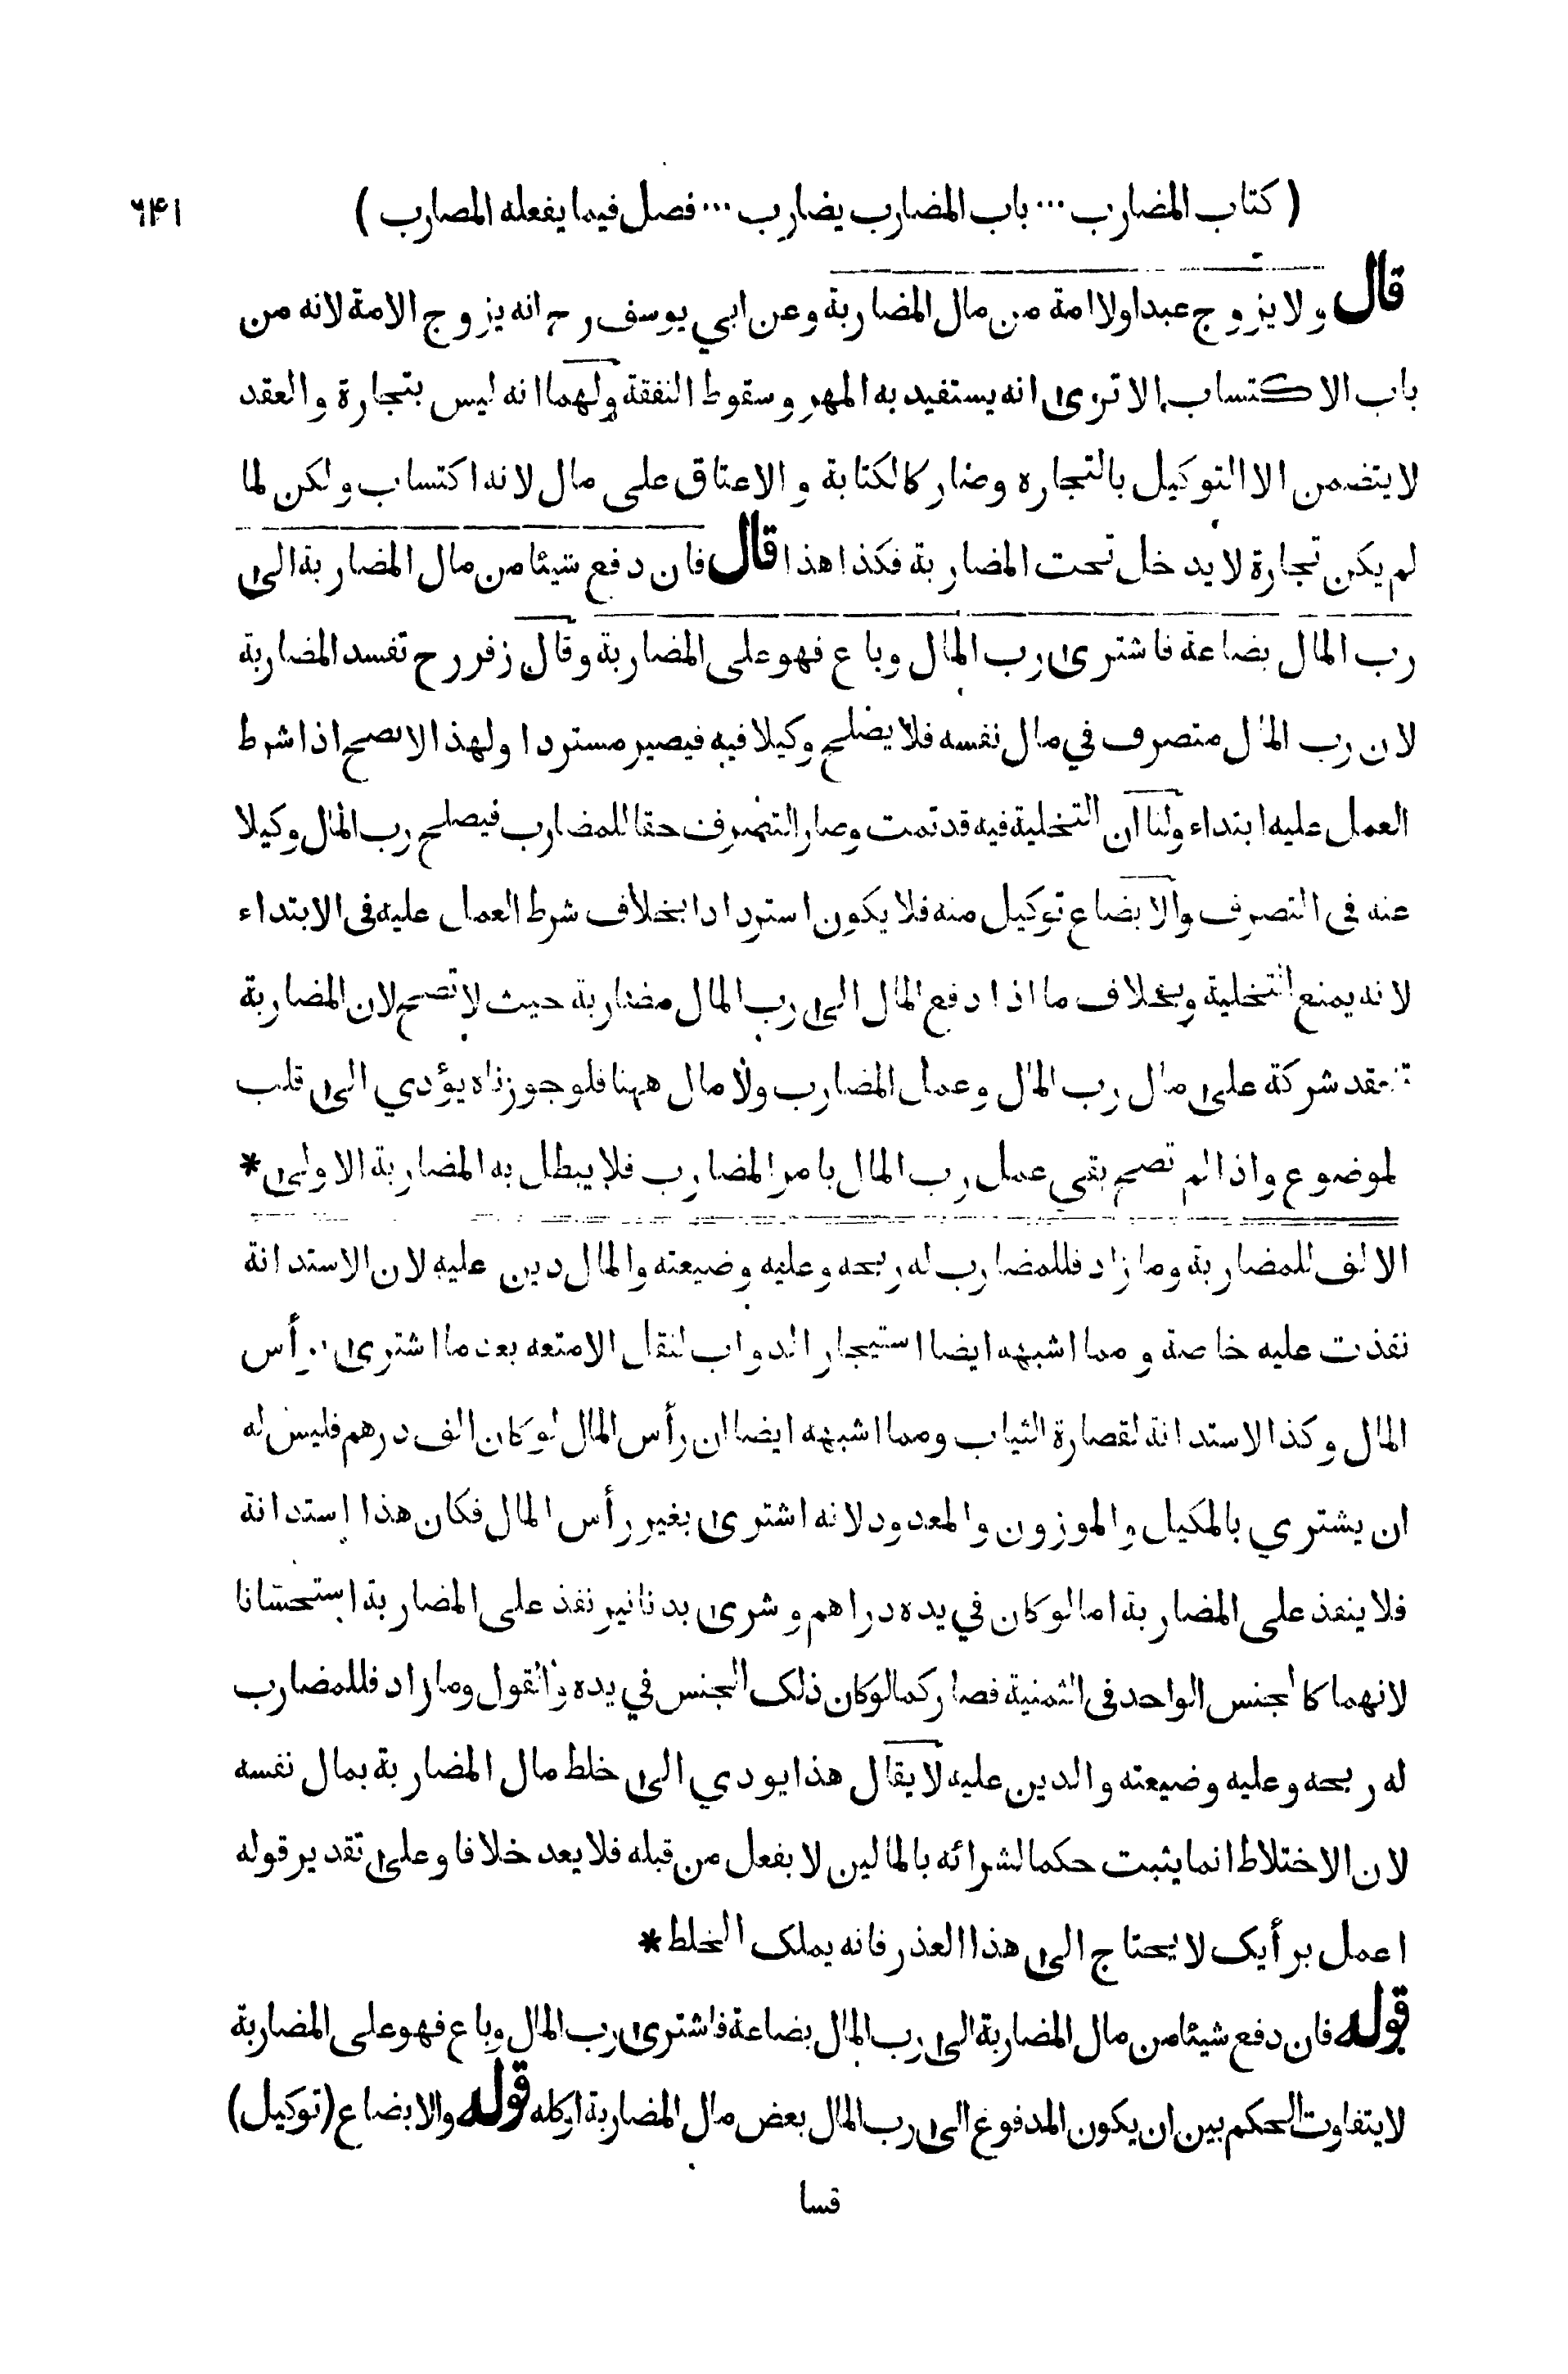 ( كتاب المضارب ... باب المضارب يضارب ... فصل فيما يفعله المصارب ) ٦۴١
قال ولا يزوج عبدا ولا امة من مال المضاربة وعن ابي يوسف رح انه يزوج الامة لانه من
باب الاكتساب الا ترى انه يستفيد به المهر وسقوط النفقة ولهما انه ليس بتجارة والعقد
لا يتضمن الا التوكيل بالتجاره وصار كالكتابة والاعتاق على مال لانه اكتساب ولكن لما
لم يكن تجارة لا يدخل تحت المضاربة فكذا هذا قال فان دفع شيئا من مال المضاربة الى
رب المال بضاعة فاشترى رب المال وباع فهو على المضاربة وقال زفر رح تفسد المضاربة
لان رب المال متصرف في مال نفسه فلا يصلح وكيلا فيه فيصير مستردا ولهذا لا تصح اذا شرط
العمل عليه ابتداء ولنا ان التخلية فيه قد تمت وصار التصرف حقا للمضارب فيصلح رب المال وكيلا
عنه فى التصرف والابضاع توكيل منه فلا يكون استردادا بخلاف شرط العمل عليه فى الابتداء
لانه يمنع التخلية وبخلاف ما اذا دفع المال الى رب المال مضاربة حيث لا تصح لان المضاربة
تنعقد شركة على مال رب المال وعمل المضارب ولا مال ههنا فلو جوزناه يؤدي الى قلب
لموضوع واذا لم تصح بقي عمل رب المال بامر المضارب فلا يبطل به المضاربة الاولى *
الالف للمضاربة وما زاد فللمضارب له ربحه وعليه وضيعته والمال دين عليه لان الاستدانة
نفذت عليه خاصة ومما اشبهه ايضا استيجار الدواب لنقل الامتعه بعد ما اشترى برأس
المال وكذا الاستدانة لقصارة الثياب ومما اشبهه ايضا ان رأس المال لو كان الف درهم فليس له
ان يشتري بالمكيل والموزون والمعدود لانه اشترى بغير رأس المال فكان هذا استدانة
فلا ينفذ على المضاربة اما لو كان في يده دراهم وشرى بدنانير نفذ على المضاربة استحسانا
لانهما كالجنس الواحد فى الثمنية فصار كما لو كان ذلك الجنس في يده والقول وما زاد فللمضارب
له ربحه وعليه وضيعته والدين عليه لا يقال هذا يودي الى خلط مال المضاربة بمال نفسه
لان الاختلاط انما يثبت حكما لشرائه بالمالين لا بفعل من قبله فلا يعد خلافا وعلى تقدير قوله
اعمل برأيك لا يحتاج الى هذا العذر فانه يملك الخلط *
قوله فان دفع شيئا من مال المضاربة الى رب المال بضاعة فاشترى رب المال وباع فهو على المضاربة
لا يتفاوت الحكم بين ان يكون المدفوع الى رب المال بعض مال المضاربة او كله قوله والابضاع (توكيل)